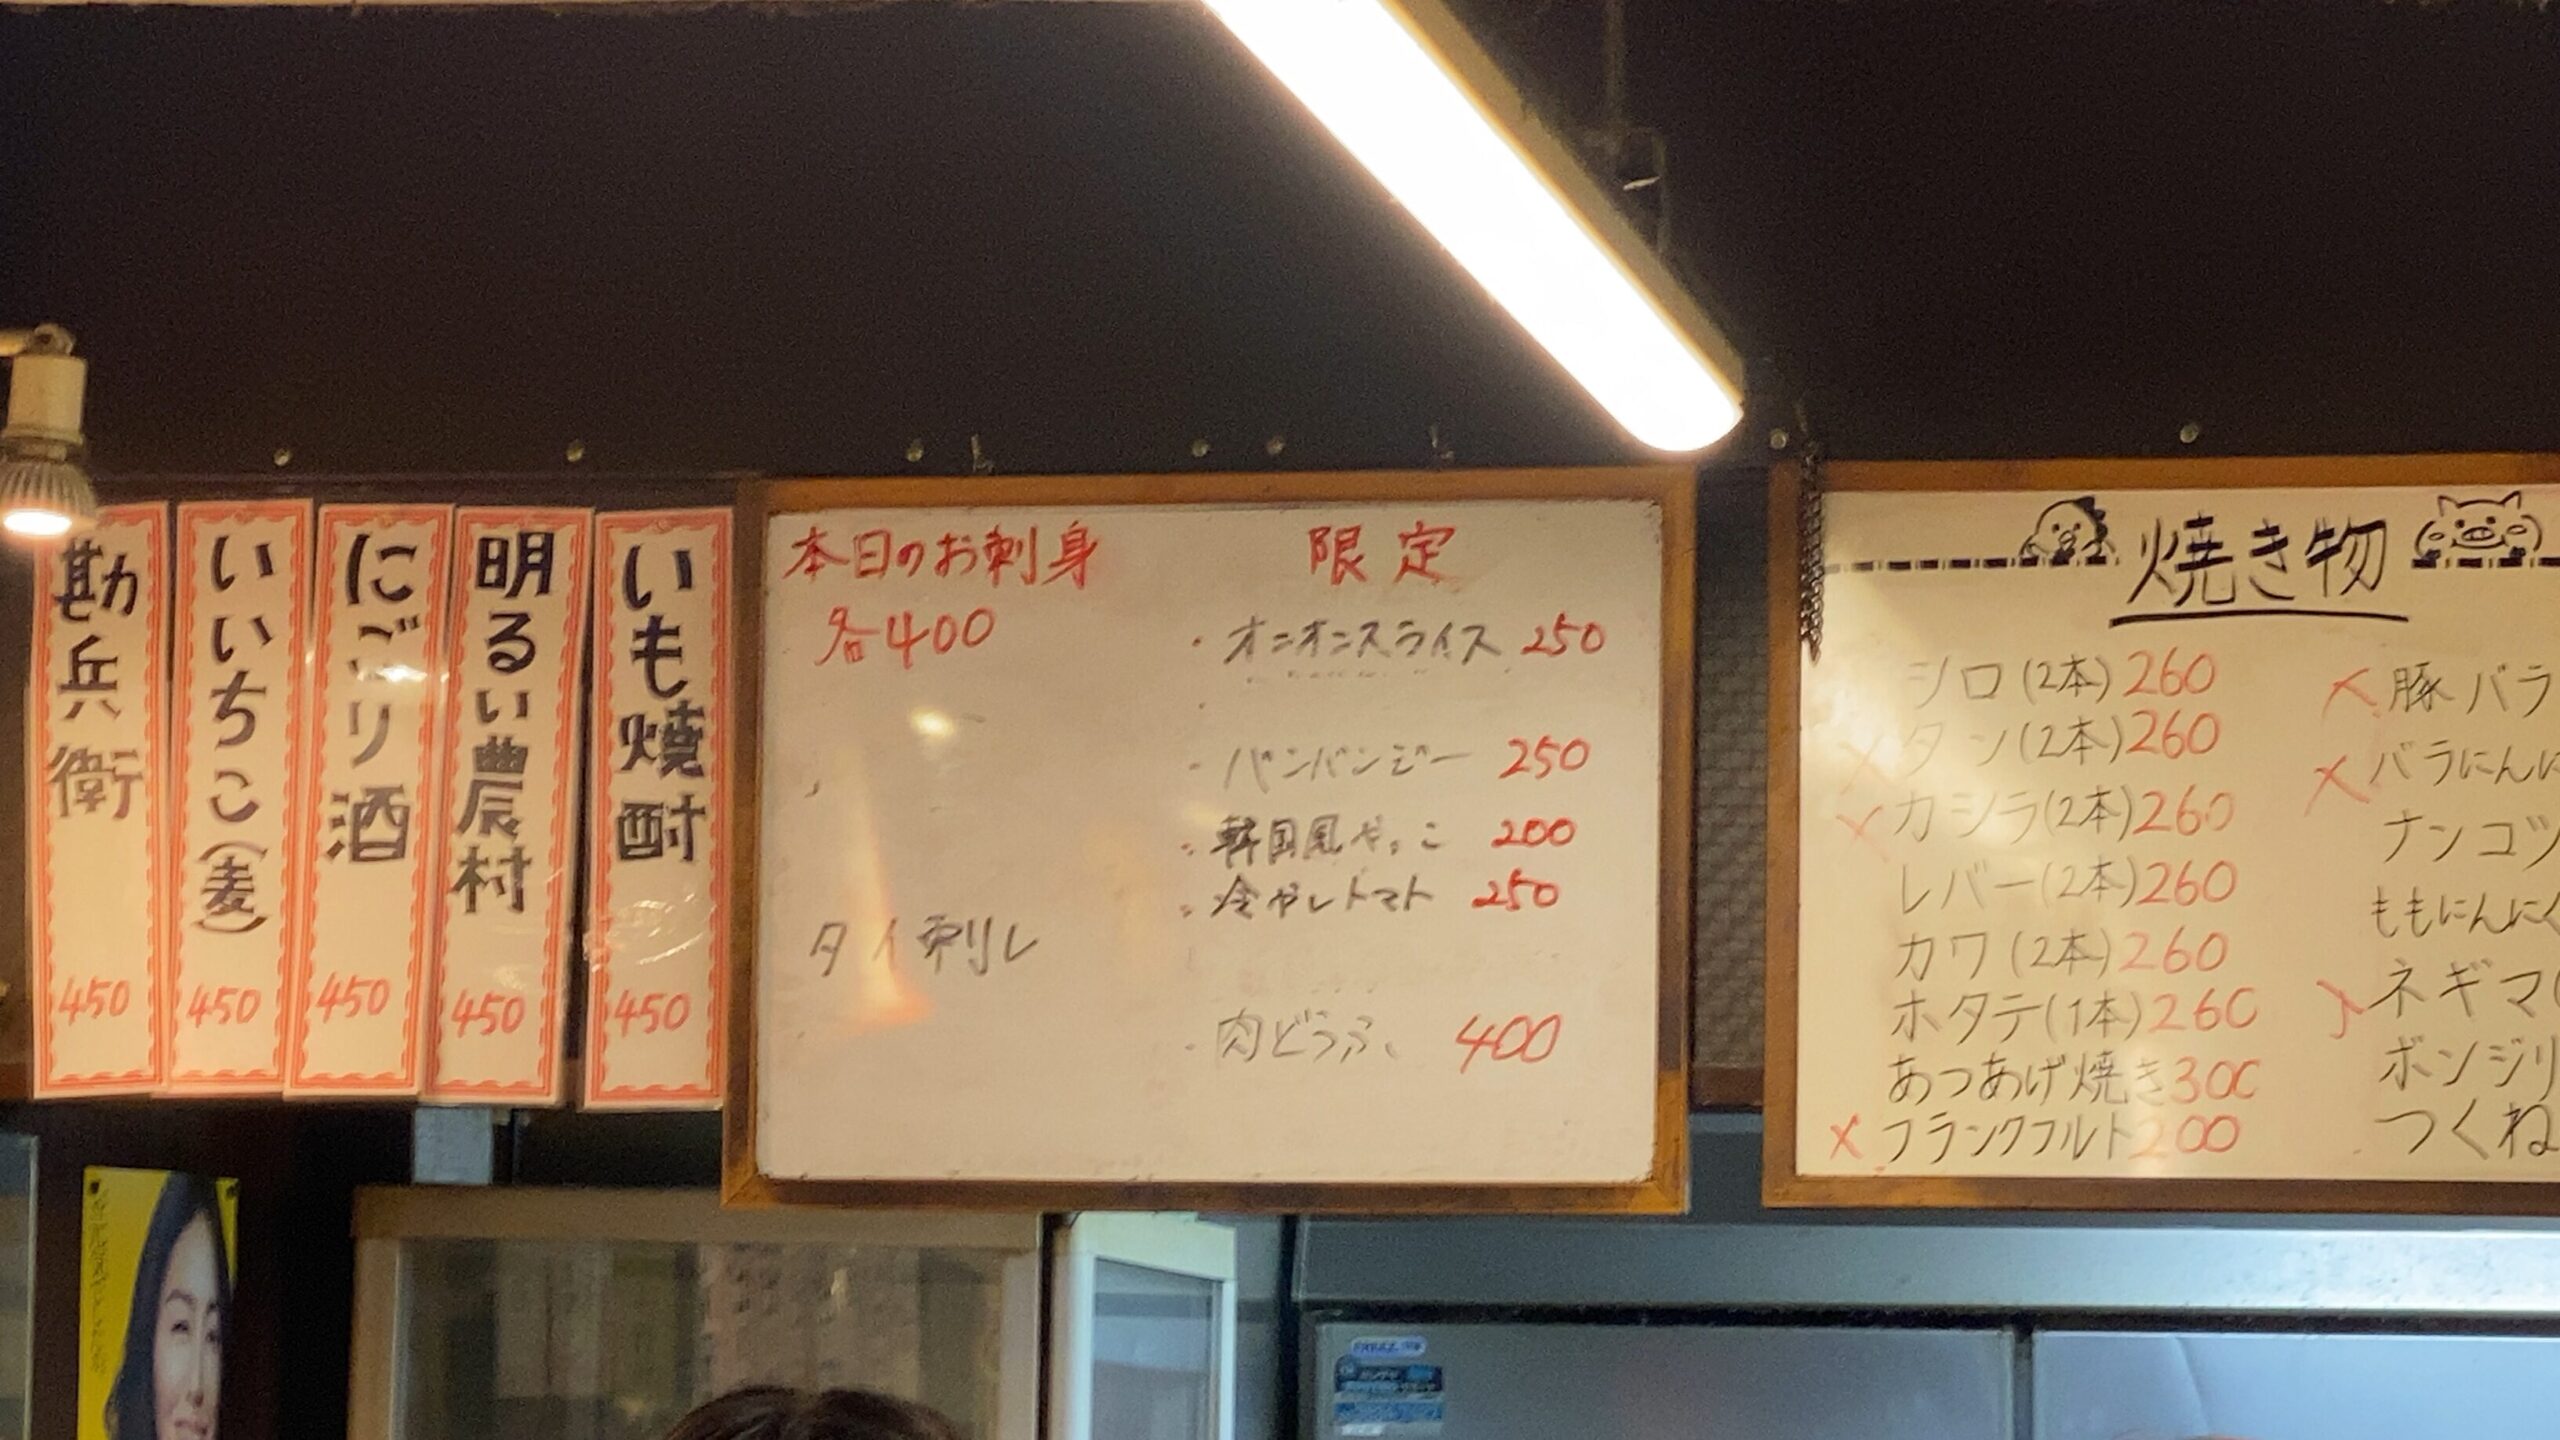 勘兵衛
450
いいちこ(麦)
450
にごり酒
450
明るい農村
450
いも焼酎
450
本日のお刺身
各400
タイ刺し
限定
・オニオンスライス 250
・バンバンジー 250
・韓国風やっこ 200
・冷やしトマト 250
・肉どうふ 400
焼き物
シロ(2本)260
×タン(2本)260
×カシラ(2本)260
レバー(2本)260
カワ(2本)260
ホタテ(1本)260
あつあげ焼き300
×フランクフルト200
×豚バラ
×バラにんに
ナンコツ
ももにんにく
×ネギマ(
ボンジリ
つくね